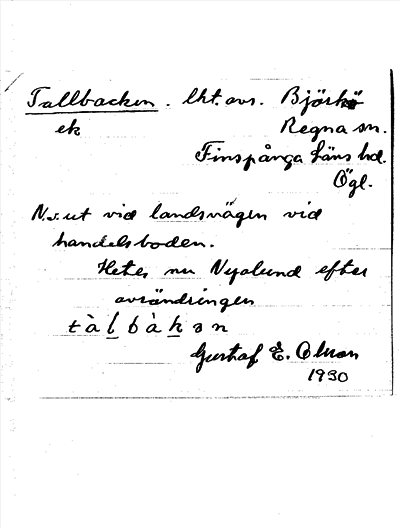 Tallbacken. lht. avs. Björkö
ek Regna sn.
Finspånga läns hd.
Ögl.
N.v. ut vid landsvägen vid
handelsboden.
Hetes nu Nyalund efter
avsändringen
tàlbàkən
Gustaf E. Olsson
1930